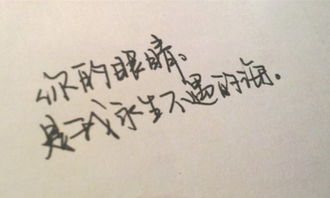 你的眼睛。
是我永生不遇的海。